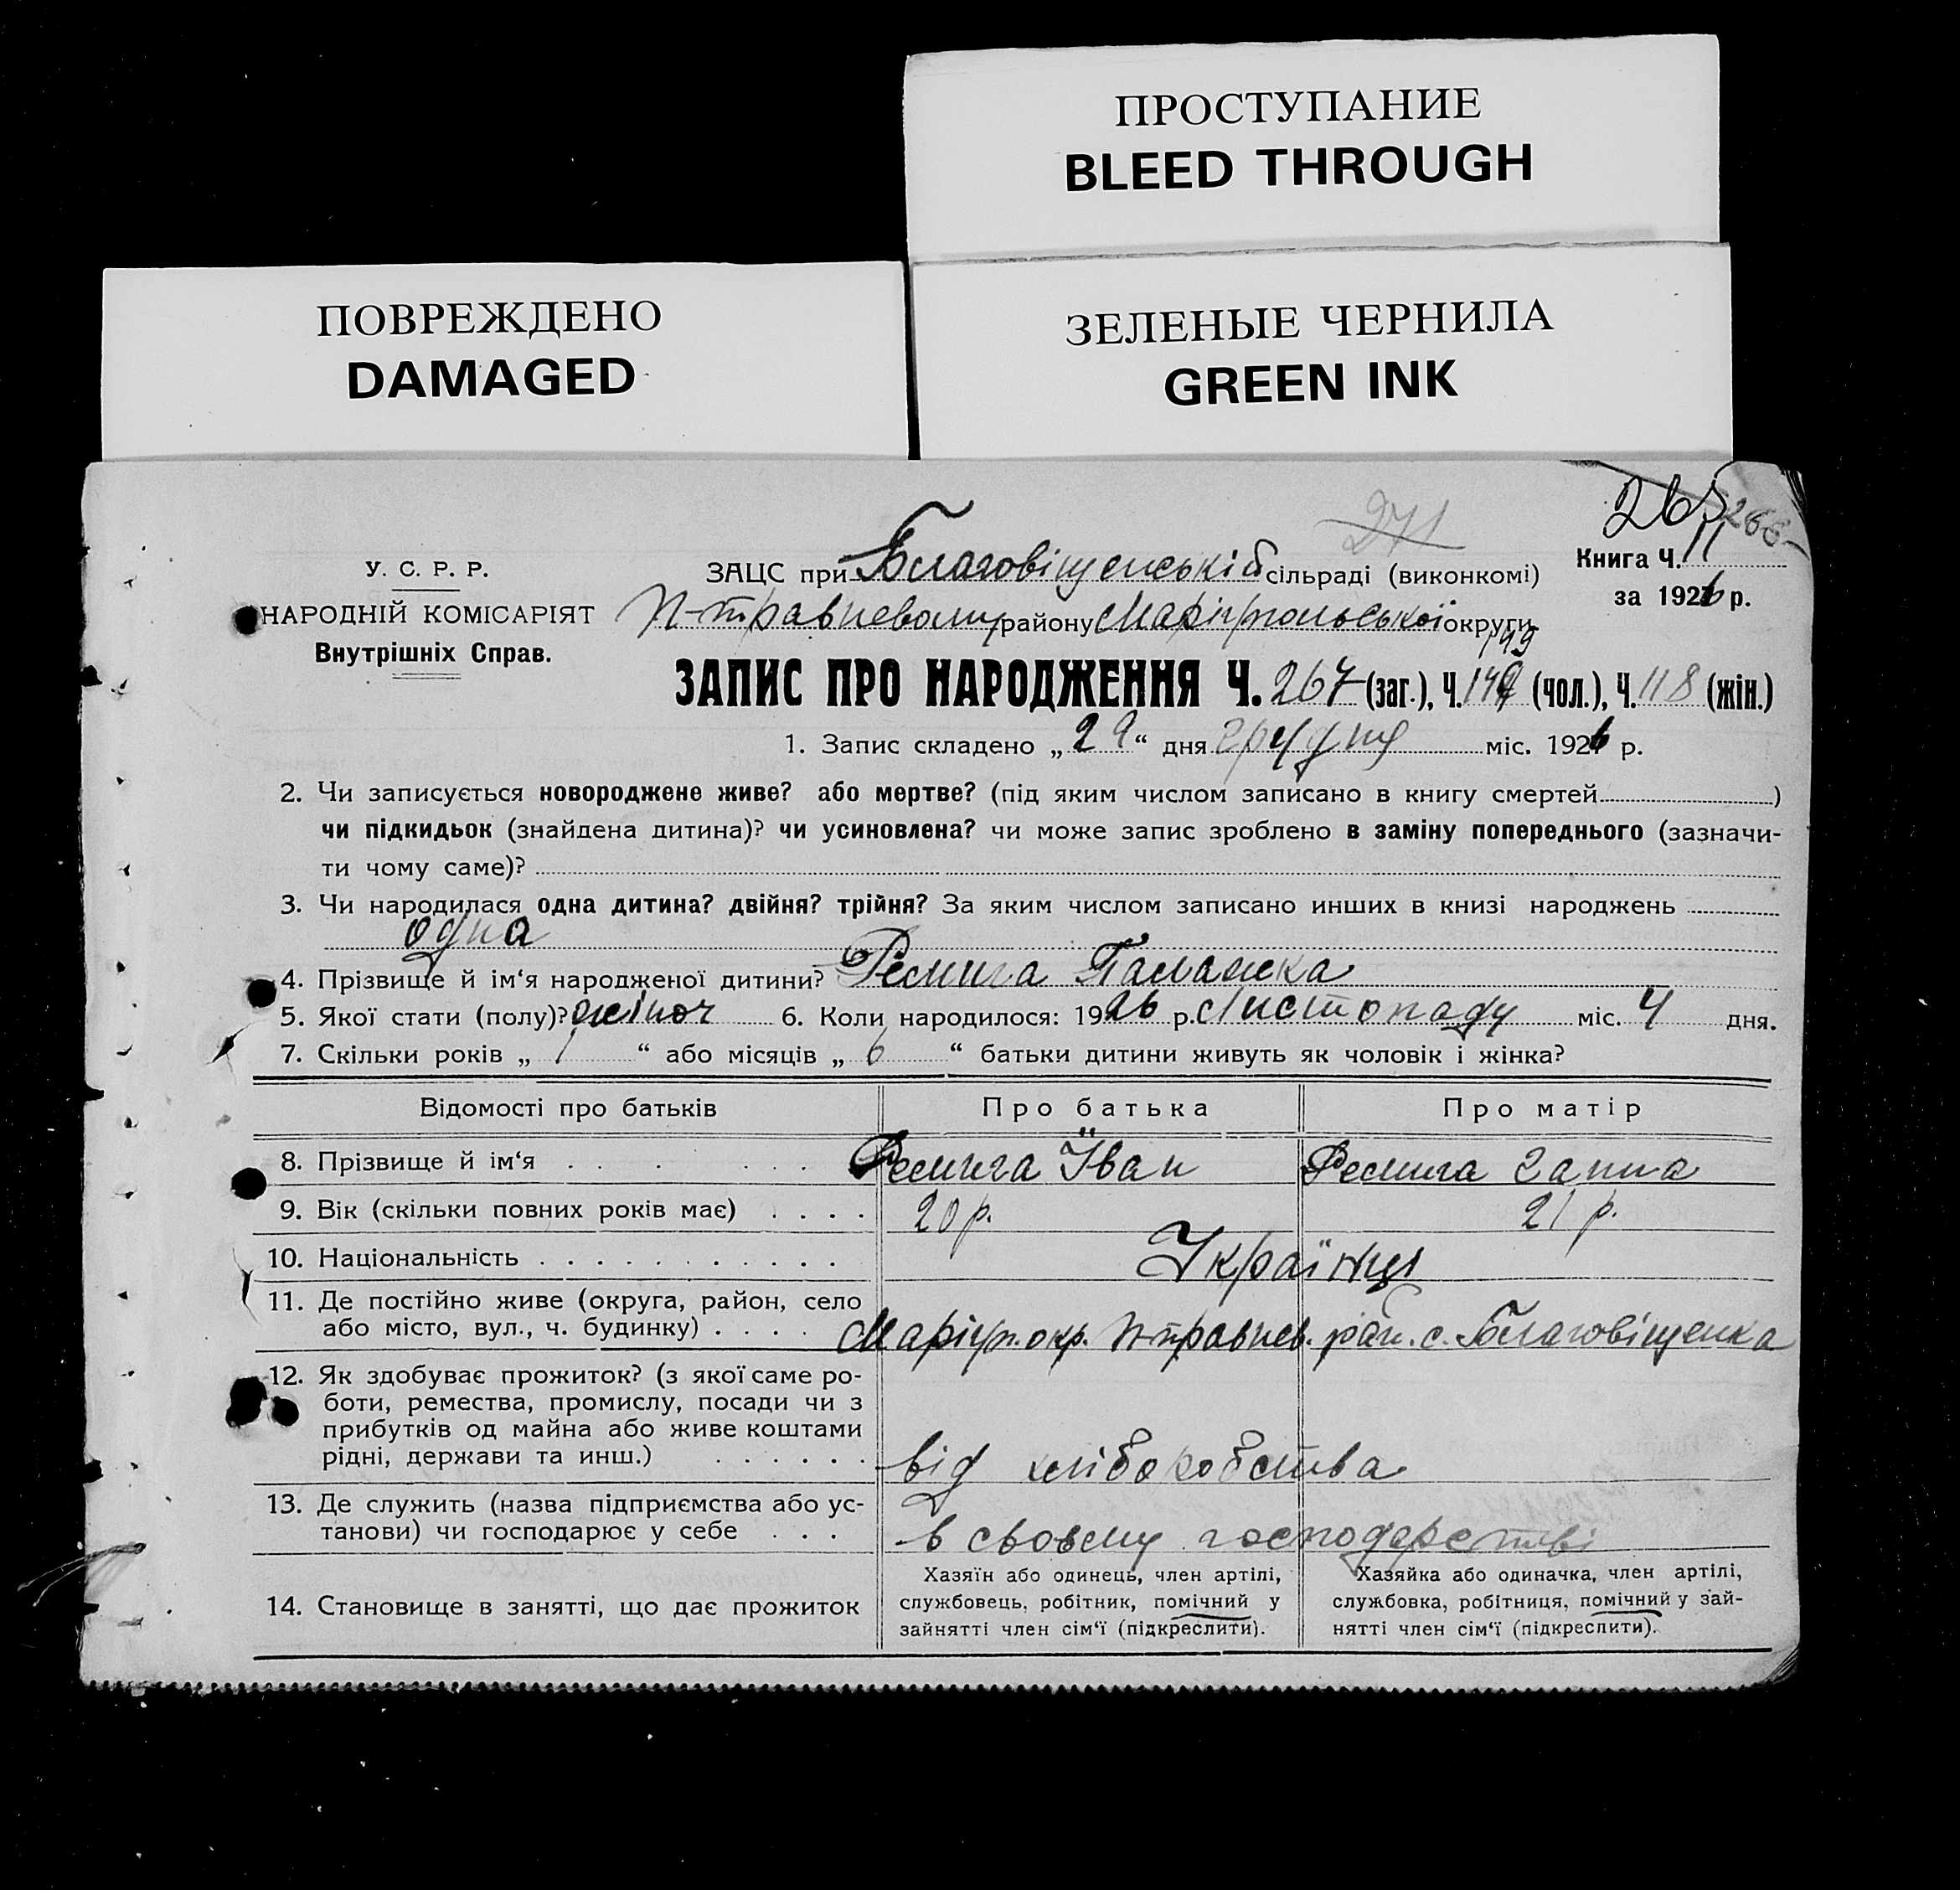 ПРОСТУПАНИЕ
BLEED THROUGH
ПОВРЕЖДЕНО
DAMAGED
ЗЕЛЕНЫЕ ЧЕРНИЛА
GREEN INK
271
265
266
У. С. Р. Р.
НАРОДНІЙ КОМІСАРІЯТ
Внутрішніх Справ.
Книга Ч. 11
за 1926 р.
ЗАЦС при Благовіщенській сільраді (виконкомі)
П-травневому району Маріупольської округи
149
ЗАПИС ПРО НАРОДЖЕННЯ Ч. 267 (заг.), Ч. 149 (чол.), Ч. 118 (жін.)
1. Запис складено „ 29 “ дня грудня міс. 1926 р.
2. Чи записується новороджене живе? або мертве? (під яким числом записано в книгу смертей )
чи підкидьок (знайдена дитина)? чи усиновлена? чи може запис зроблено в заміну попереднього (зазначи-
ти чому саме)?
3. Чи народилася одна дитина? двійня? трійня? За яким числом записано инших в книзі народжень
одна
4. Прізвище й ім‘я народженої дитини? Ремига Палажка
5. Якої стати (полу)? жіноч 6. Коли народилося: 1926 р. Листопаду міс. 4 дня.
7. Скільки років „ 1 “ або місяців „ 6 “ батьки дитини живуть як чоловік і жінка?
Відомості про батьків Про батька Про матір
8. Прізвище й ім‘я Ремига Їван Ремига Ганна
9. Вік (скільки повних років має) 20 р. 21 р.
10. Національність Українці
11. Де постійно живе (округа, район, село
або місто, вул., ч. будинку) Маріуп. окр. П-травнев. рай. с. Благовіщенка
12. Як здобуває прожиток? (з якої саме ро-
боти, ремества, промислу, посади чи з
прибутків од майна або живе коштами
рідні, держави та инш.) від хліборобства
13. Де служить (назва підприємства або ус-
танови) чи господарює у себе в своєму господарстві
14. Становище в занятті, що дає прожиток
Хазяїн або одинець, член артілі,
службовець, робітник, помічний у
зайнятті член сім‘ї (підкреслити).
Хазяйка або одиначка, член артілі,
службовка, робітниця, помічний у зай-
нятті член сім‘ї (підкреслити).